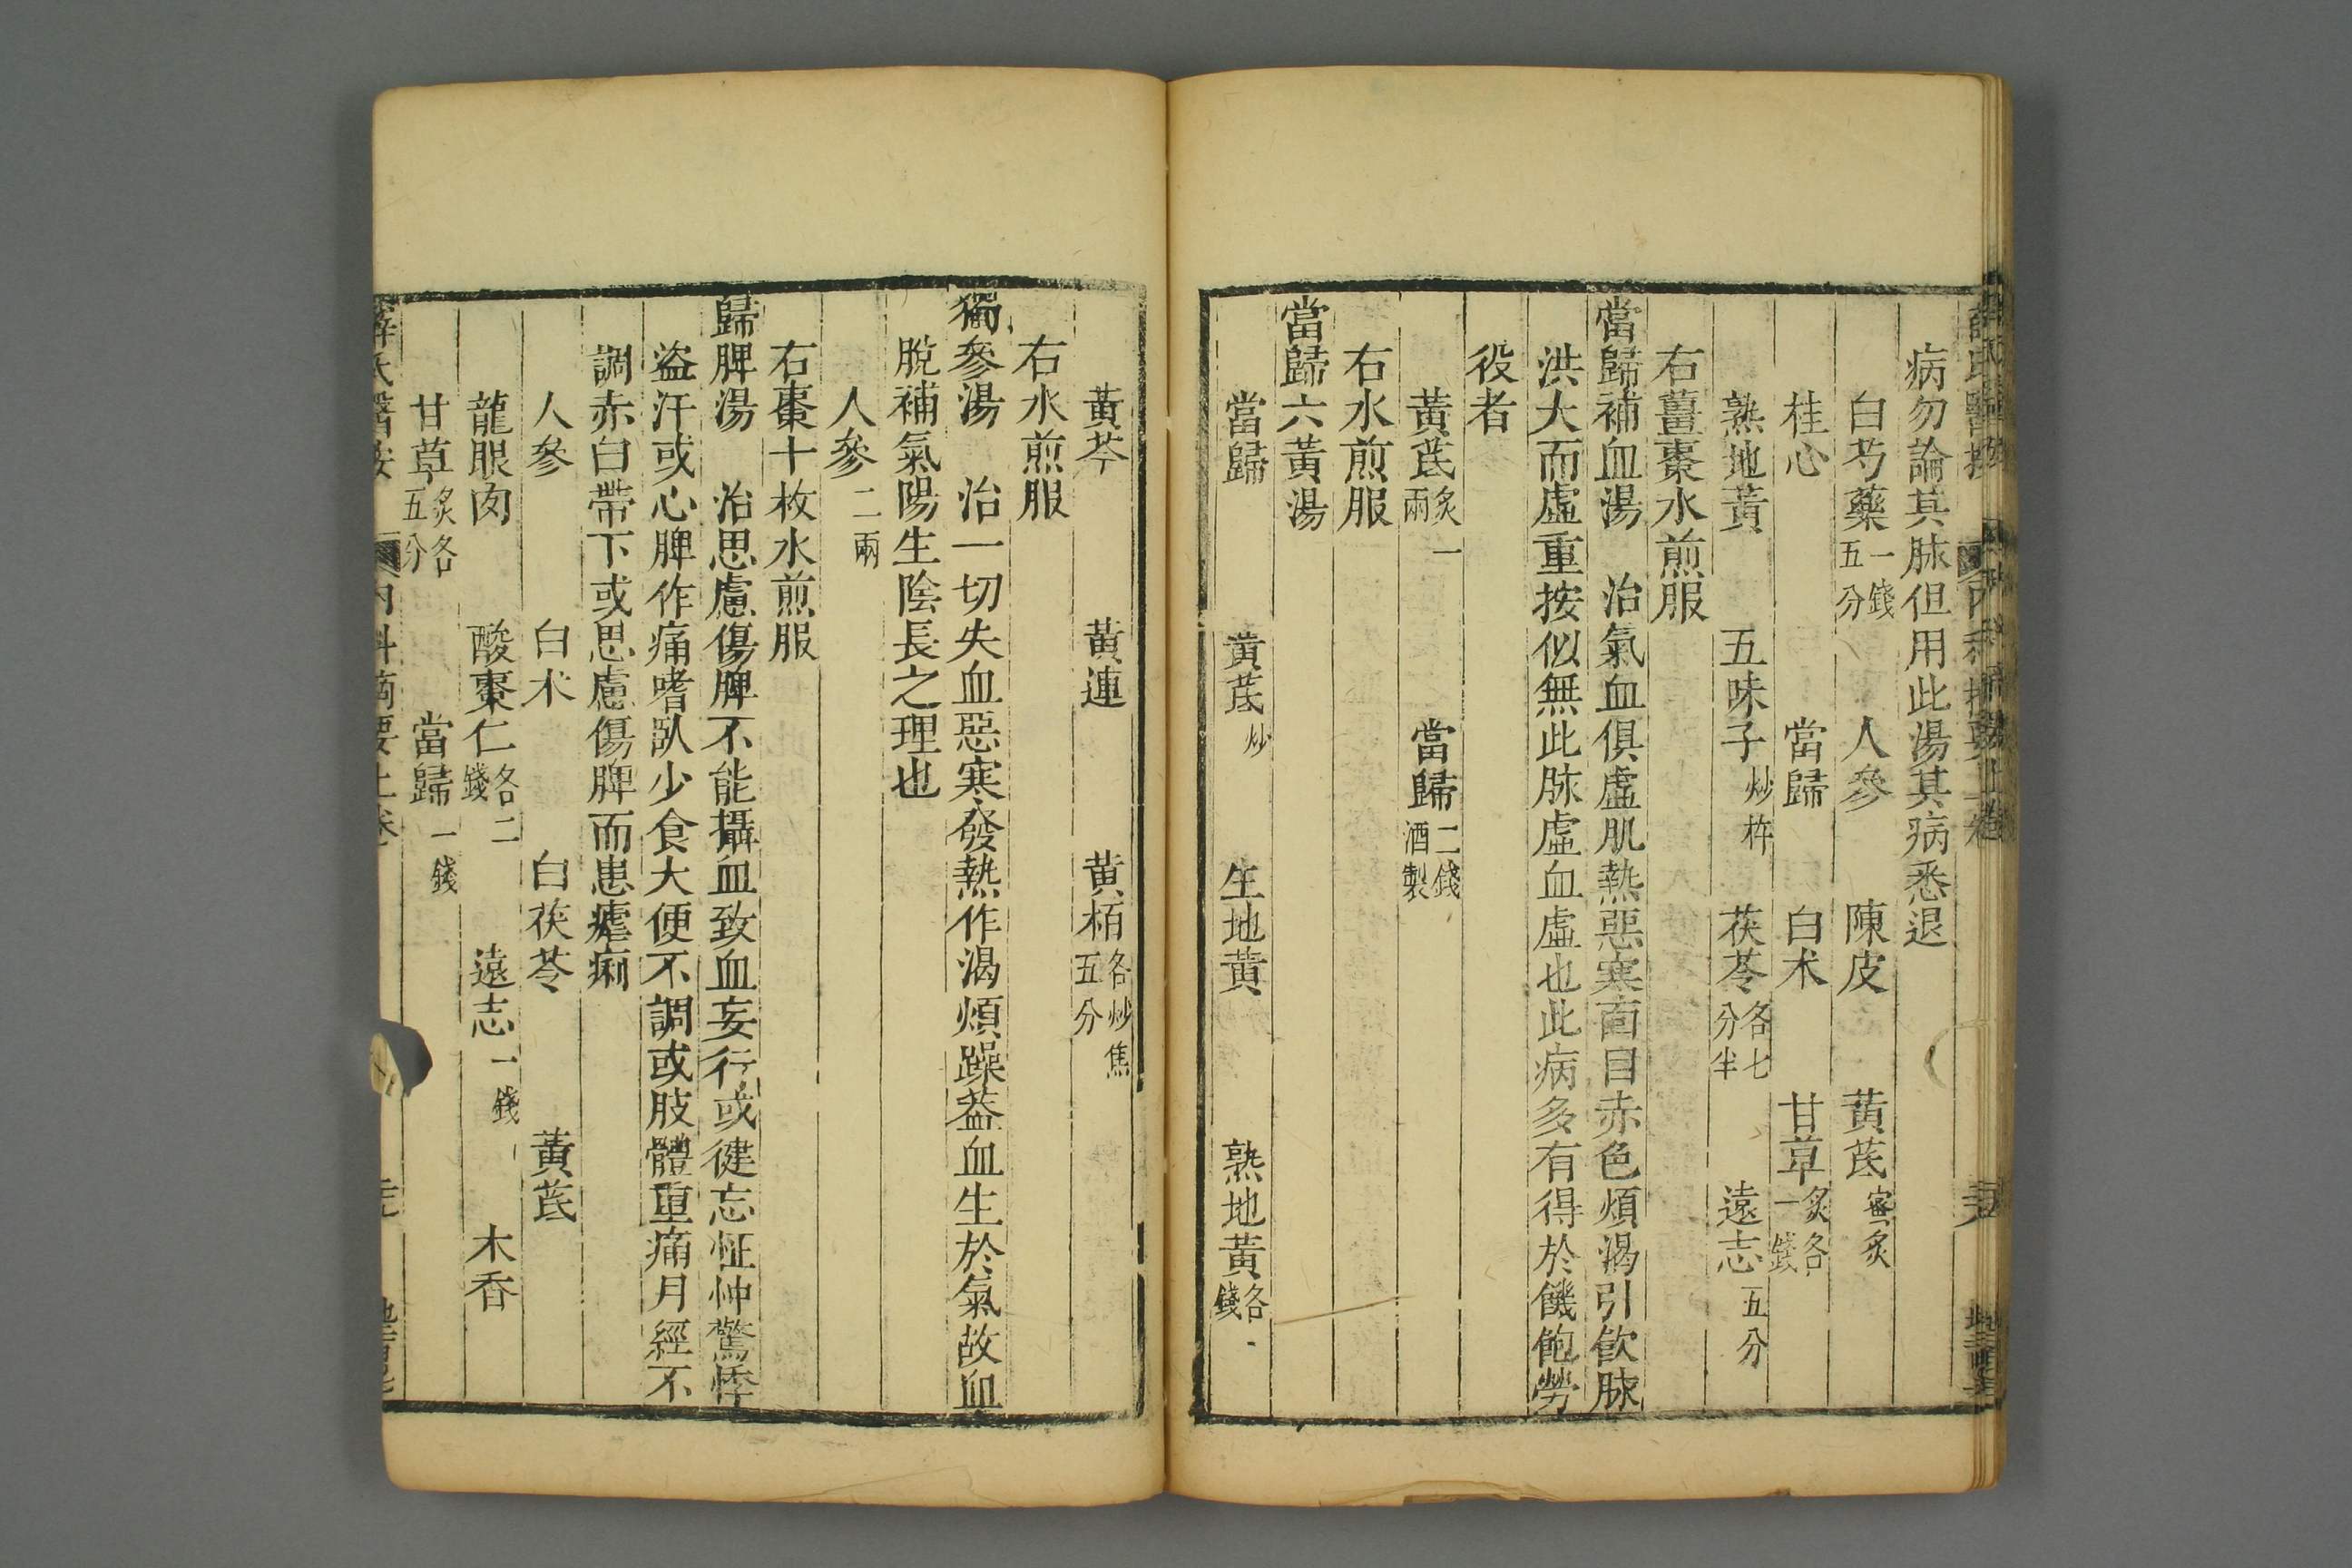 病勿論其脉但用此湯其病悉退
白芍藥一錢五分 人參 陳皮 黃芪蜜炙
桂心 當歸 白朮 甘草炙各一錢
熟地黃 五味子炒杵 茯苓各七分半 遠志五分
右薑棗水煎服
當歸補血湯 治氣血俱虛肌熱惡寒面目赤色煩渴引飲脉
洪大而虛重按似無此脉虛血虛也此病多有得於饑飽勞
役者
黃芪炙一兩 當歸二錢酒製
右水煎服
當歸六黃湯
當歸 黃芪炒 生地黃 熟地黃各一錢
黃芩 黃連 黃栢各炒焦五分
右水煎服
獨參湯 治一切失血惡寒發熱作渴煩躁葢血生於氣故血
脫補氣陽生陰長之理也
人參二兩
右棗十枚水煎服
歸脾湯 治思慮傷脾不能攝血致血妄行或健忘怔忡驚悸
盜汗或心脾作痛嗜臥少食大便不調或肢體重痛月經不
調赤白帶下或思慮傷脾而患瘧痢
人參 白朮 白茯苓 黃芪
龍眼肉 酸棗仁各二錢 遠志一錢 木香
甘草炙各五分 當歸一錢
薛氏醫按 內科摘要上卷